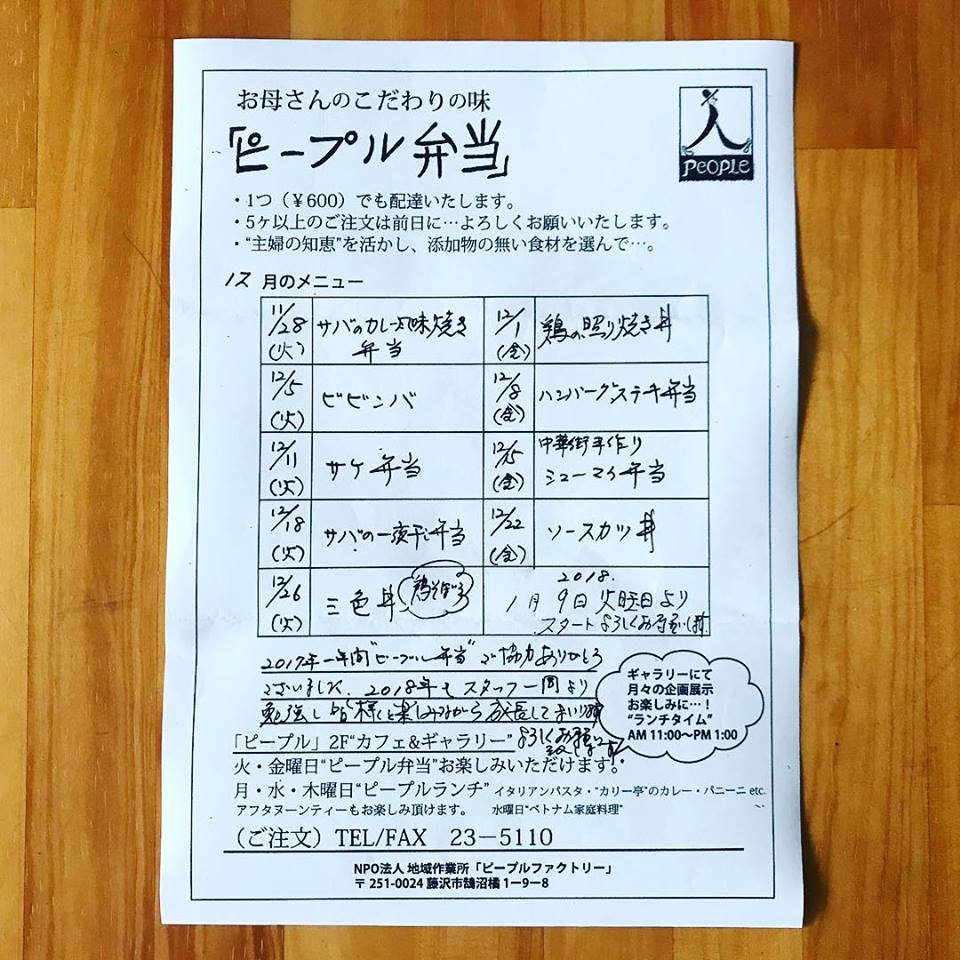 お母さんのこだわりの味
PEOPLE
「ピープル弁当」
・1つ（￥600）でも配達いたします。
・5ヶ以上のご注文は前日に…よろしくお願いいたします。
・“主婦の知恵”を活かし、添加物の無い食材を選んで…。
12 月のメニュー
11/28 (火) サバのカレー風味焼き弁当
12/1 (金) 鶏の照り焼き丼
12/5 (火) ビビンバ
12/8 (金) ハンバーグステーキ弁当
12/11 (火) サケ弁当
12/15 (金) 中華街手作りシューマイ弁当
12/18 (火) サバの一夜干し弁当
12/22 (金) ソースカツ丼
12/26 (火) 三色丼 鶏そぼろ
2018.
1月9日火曜日より
スタートよろしくお願いします
2017年一年間“ピープル弁当”ご協力ありがとう
ございました。2018年もスタッフ一同より
勉強し皆様と楽しみながら成長してまいります
よろしくお願い致します
ギャラリーにて
月々の企画展示
お楽しみに…！
“ランチタイム”
AM 11:00～PM 1:00
「ピープル」2F“カフェ&ギャラリー”
火・金曜日“ピープル弁当”お楽しみいただけます。
月・水・木曜日“ピープルランチ” イタリアンパスタ・“カリー亭”のカレー・パニーニ etc.
アフタヌーンティーもお楽しみ頂けます。 水曜日“ベトナム家庭料理”
（ご注文）TEL/FAX 23－5110
NPO法人 地域作業所「ピープルファクトリー」
〒251-0024 藤沢市鵠沼橘 1ー9ー8